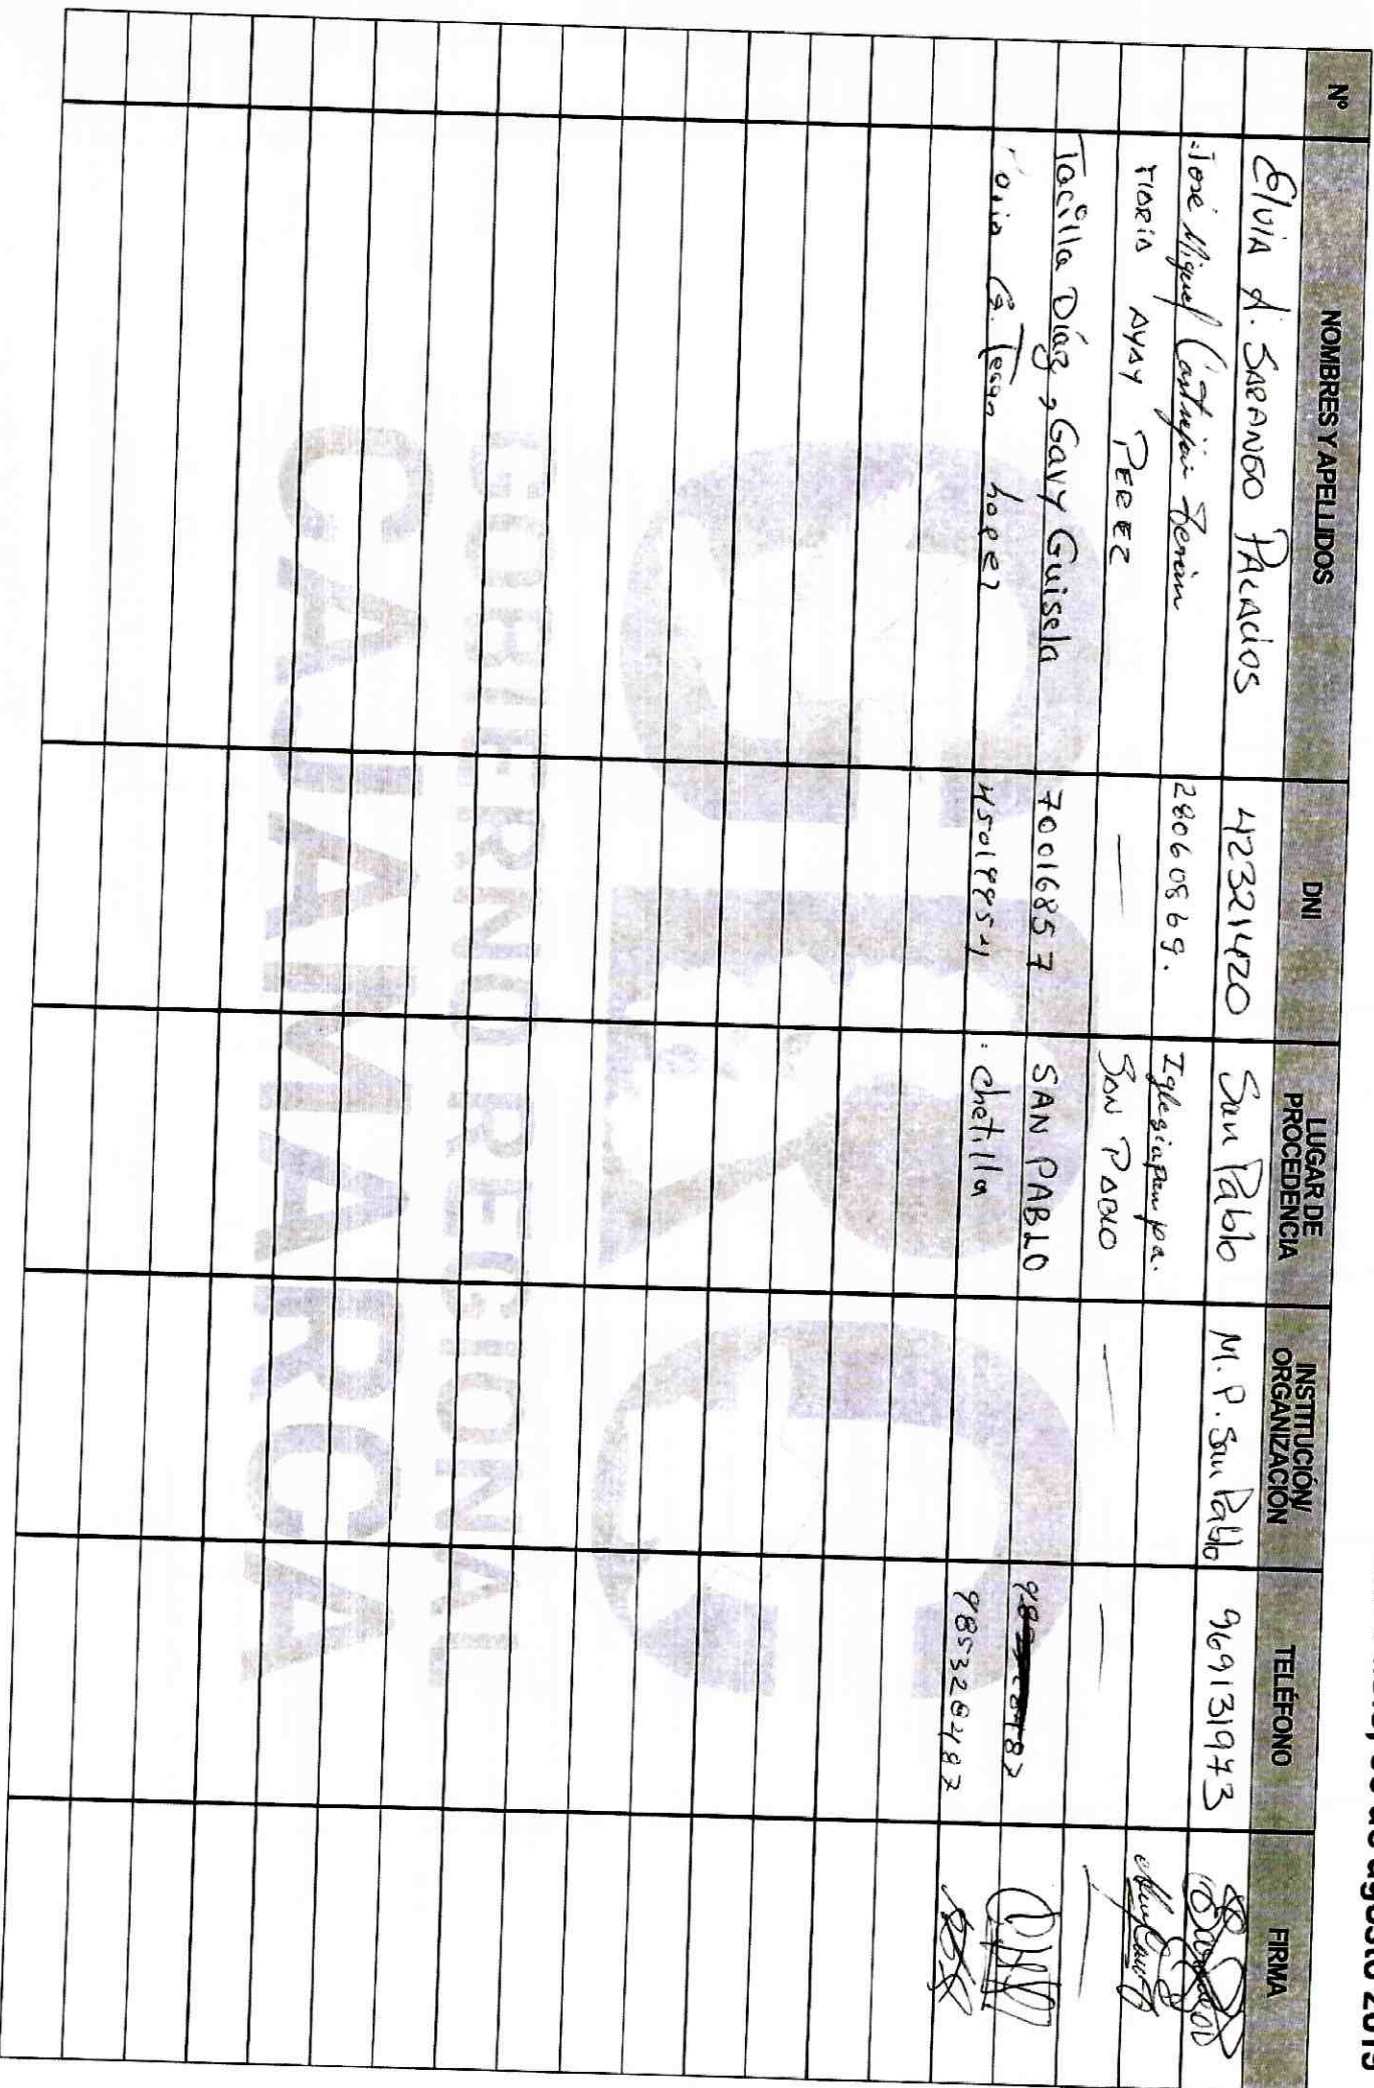 de agosto 2019
Nº NOMBRES Y APELLIDOS DNI LUGAR DE PROCEDENCIA INSTITUCIÓN/ ORGANIZACIÓN TELÉFONO FIRMA
Elvia A. SARANGO PALACIOS 42321420 San Pablo M. P. San Pablo 969131973
José Miguel Castrejón 28060869. Iglesiapampa.
MARIA AYAY PEREZ — SAN PABLO — —
Tacilla Díaz, Gavy Guisela 70016857 SAN PABLO
López Chetilla 985328487
GOBIERNO REGIONAL
CAJAMARCA